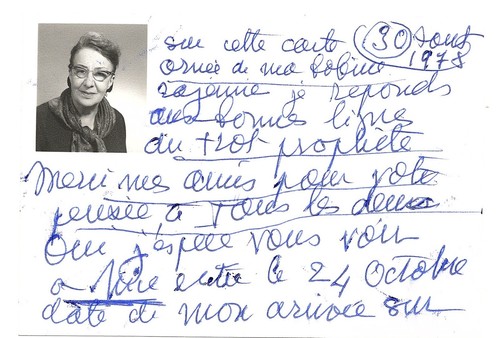 sur cette carte (30) août
ornée de ma bobine 1978
je reponds
aux bonnes lignes
du prophète
Merci mes amis pour votre
pensée à tous les deux
Oui j'espère vous voir
a Nice entre le 24 Octobre
date de mon arrivée sur